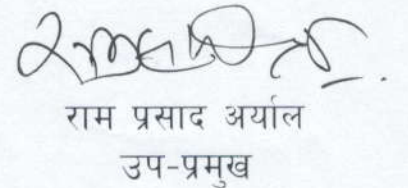 राम प्रसाद अर्याल
उप-प्रमुख